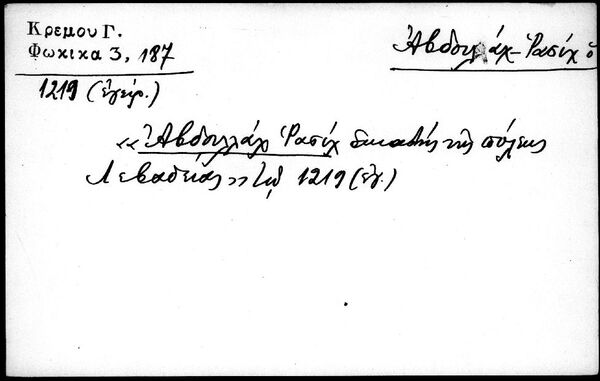 Κρεμου Γ.
Φωκικα 3, 187
Ἀβδουλλάχ Ῥασίχ ὁ
1219 (ἐγείρ.)
«Ἀβδουλλάχ Ῥασίχ δικαστής τῆς πόλεως
Λεβαδείας» τῷ 1219 (ἐγ.)